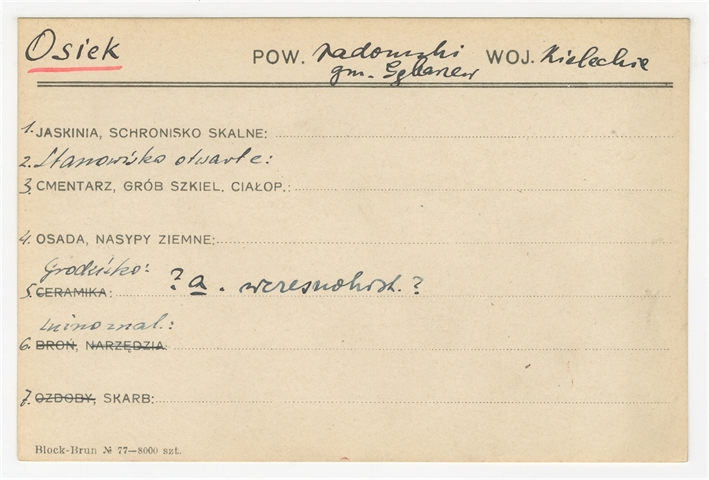 Osiek POW. radomski WOJ. Kieleckie
gm.
1. JASKINIA, SCHRONISKO SKALNE:
2. Stanowisko otwarte:
3. CMENTARZ, GRÓB SZKIEL. CIAŁOP.:
4. OSADA, NASYPY ZIEMNE:
Grodzisko:
5. CERAMIKA: ? a. wczesnohist. ?
6. BROŃ, NARZĘDZIA:
7. OZDOBY, SKARB:
Block-Brun № 77—8000 szt.